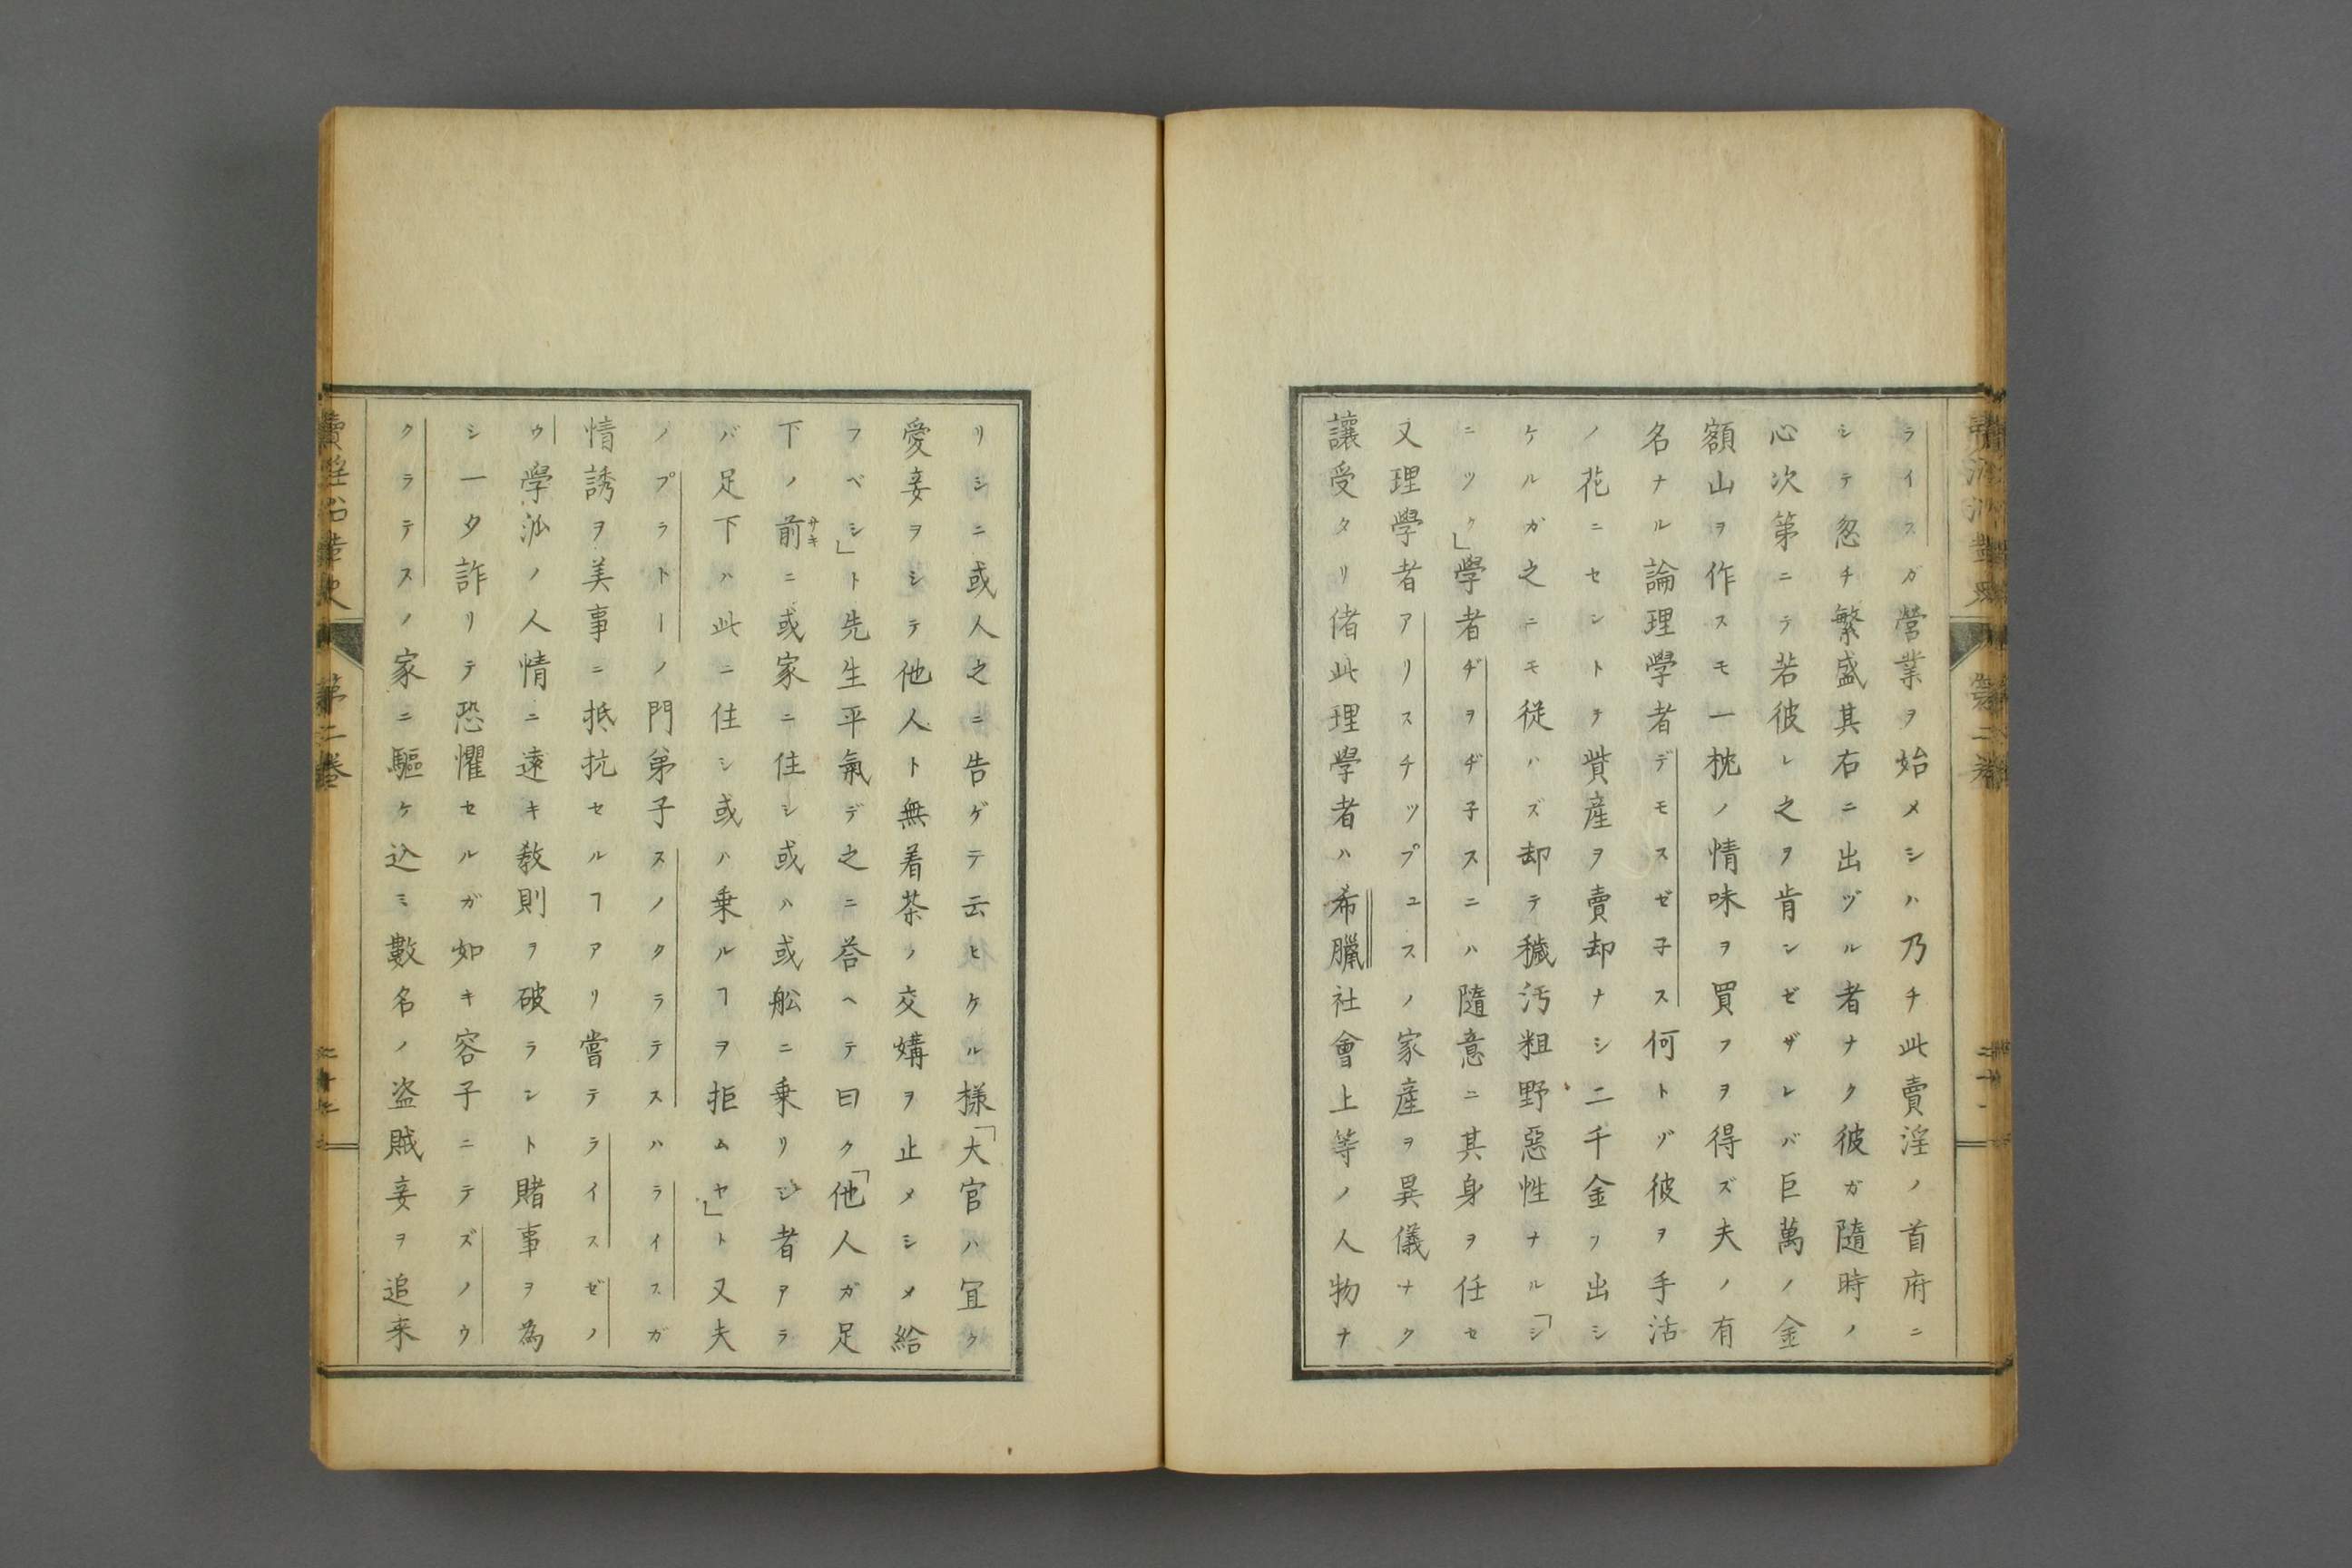 ライスガ營業ヲ始メシハ乃チ此賣淫ノ首府ニ
シテ忽チ繁盛其右ニ出ヅル者ナク彼ガ隨時ノ
心次第ニテ若彼レ之ヲ肯ンゼザレバ巨萬ノ金
額山ヲ作スモ一枕ノ情味ヲ買フヲ得ズ夫ノ有
名ナル論理學者デモスゼ子ス何トゾ彼ヲ手活
ノ花ニセントテ貲産ヲ賣却ナシ二千金ヲ出シ
ケルガ之ニモ從ハズ却テ穢汚粗野惡性ナル「シ
ニツク」學者ヂヲヂ子スニハ隨意ニ其身ヲ任セ
又理學者アリスチツプユスノ家産ヲ異儀ナク
讓受タリ偖此理學者ハ希臘社會上等ノ人物ナ
リシニ或人之ニ告ゲテ云ヒケル樣「大官ハ宜ク
愛妾ヲシテ他人ト無着茶ノ交媾ヲ止メシメ給
フベシ」ト先生平氣デ之ニ荅ヘテ曰ク「他人ガ足
下ノ前サキニ或家ニ住シ或ハ或舩ニ乗リシ者アラ
バ足下ハ此ニ住シ或ハ乗ルヿヲ拒ムヤ」ト又夫
ノプラトーノ門弟子スノクラテスハライスガ
情誘ヲ美事ニ抵抗セルヿアリ嘗テライスゼノ
ウ學泒ノ人情ニ遠キ敎則ヲ破ラント賭事ヲ為
シ一夕詐リテ恐懼セルガ如キ容子ニテズノウ
クラテスノ家ニ驅ケ込ミ數名ノ盗賊妾ヲ追来
第二卷